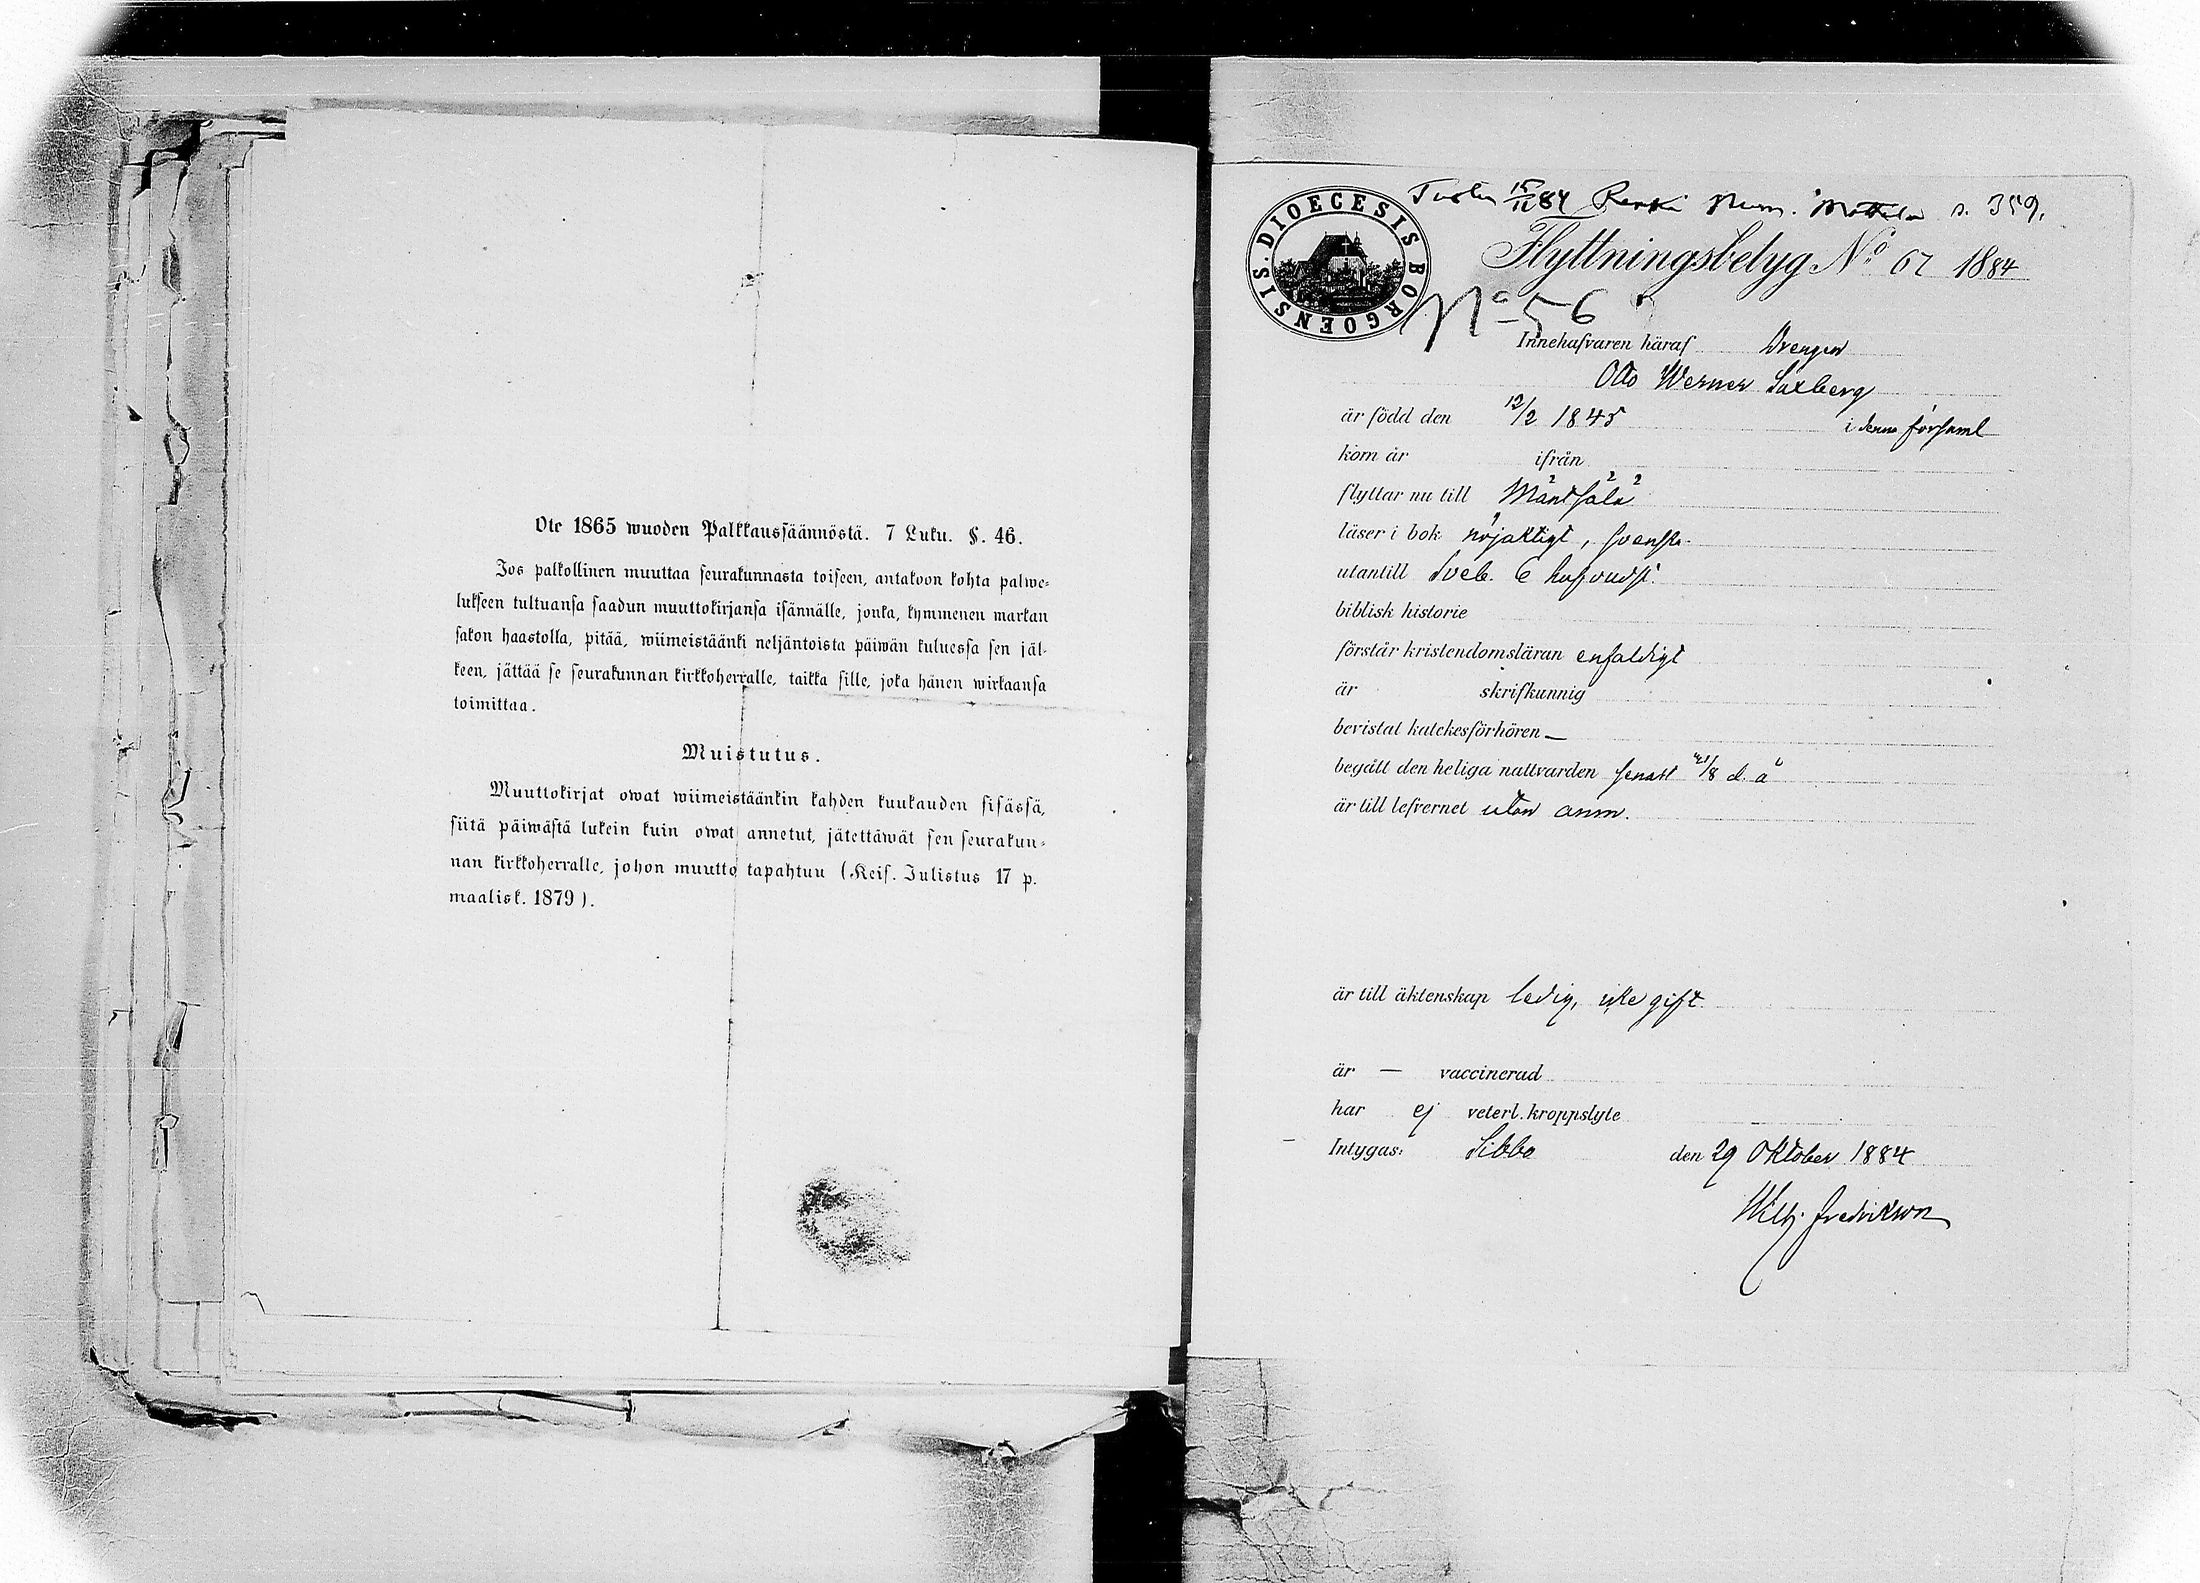 Ote 1865 wuoden Palkkaussäännöstä. 7 Luku. §. 46.
Jos palkollinen muuttaa seurakunnasta toiseen, antakoon kohta palwe-
lukseen tultuansa saadun muuttokirjansa isännälle, jonka, kymmenen markan
sakon haastolla, pitää, wiimeistäänki neljäntoista päiwän kuluessa sen jäl-
keen, jättää se seurakunnan kirkkoherralle, taikka sille, joka hänen wirkaansa
toimittaa.
Muistutus.
Muuttokirjat owat wiimeistäänkin kahden kuukauden sisässä,
siitä päiwästä lukein kuin owat annetut, jätettäwät sen seurakun-
nan kirkkoherralle, johon muutto tapahtuu (Keis. Julistus 17 p.
maalisk. 1879).
15/11 84 s. 359.
DIOECESIS BORGOENSIS.
Flyttningsbetyg No 67 1884
No 56
Innehafvaren häraf Drengen
Otto Werner Saxberg
är född den 12/2 1845 i denna församl
kom år ifrån
flyttar nu till Mäntsälä
läser i bok nöjaktigt, svenska
utantill Sveb. 6 hufvudst.
biblisk historie
förstår kristendomsläran enfaldigt
är skrifkunnig
bevistat katekesförhören —
begått den heliga nattvarden senast /8 d. å
är till lefvernet utan anm.
är till äktenskap ledig, icke gift
är — vaccinerad
har ej veterl. kroppslyte
Intygas: Sibbo den 29 Oktober 1884
Wilh. Fredrikson